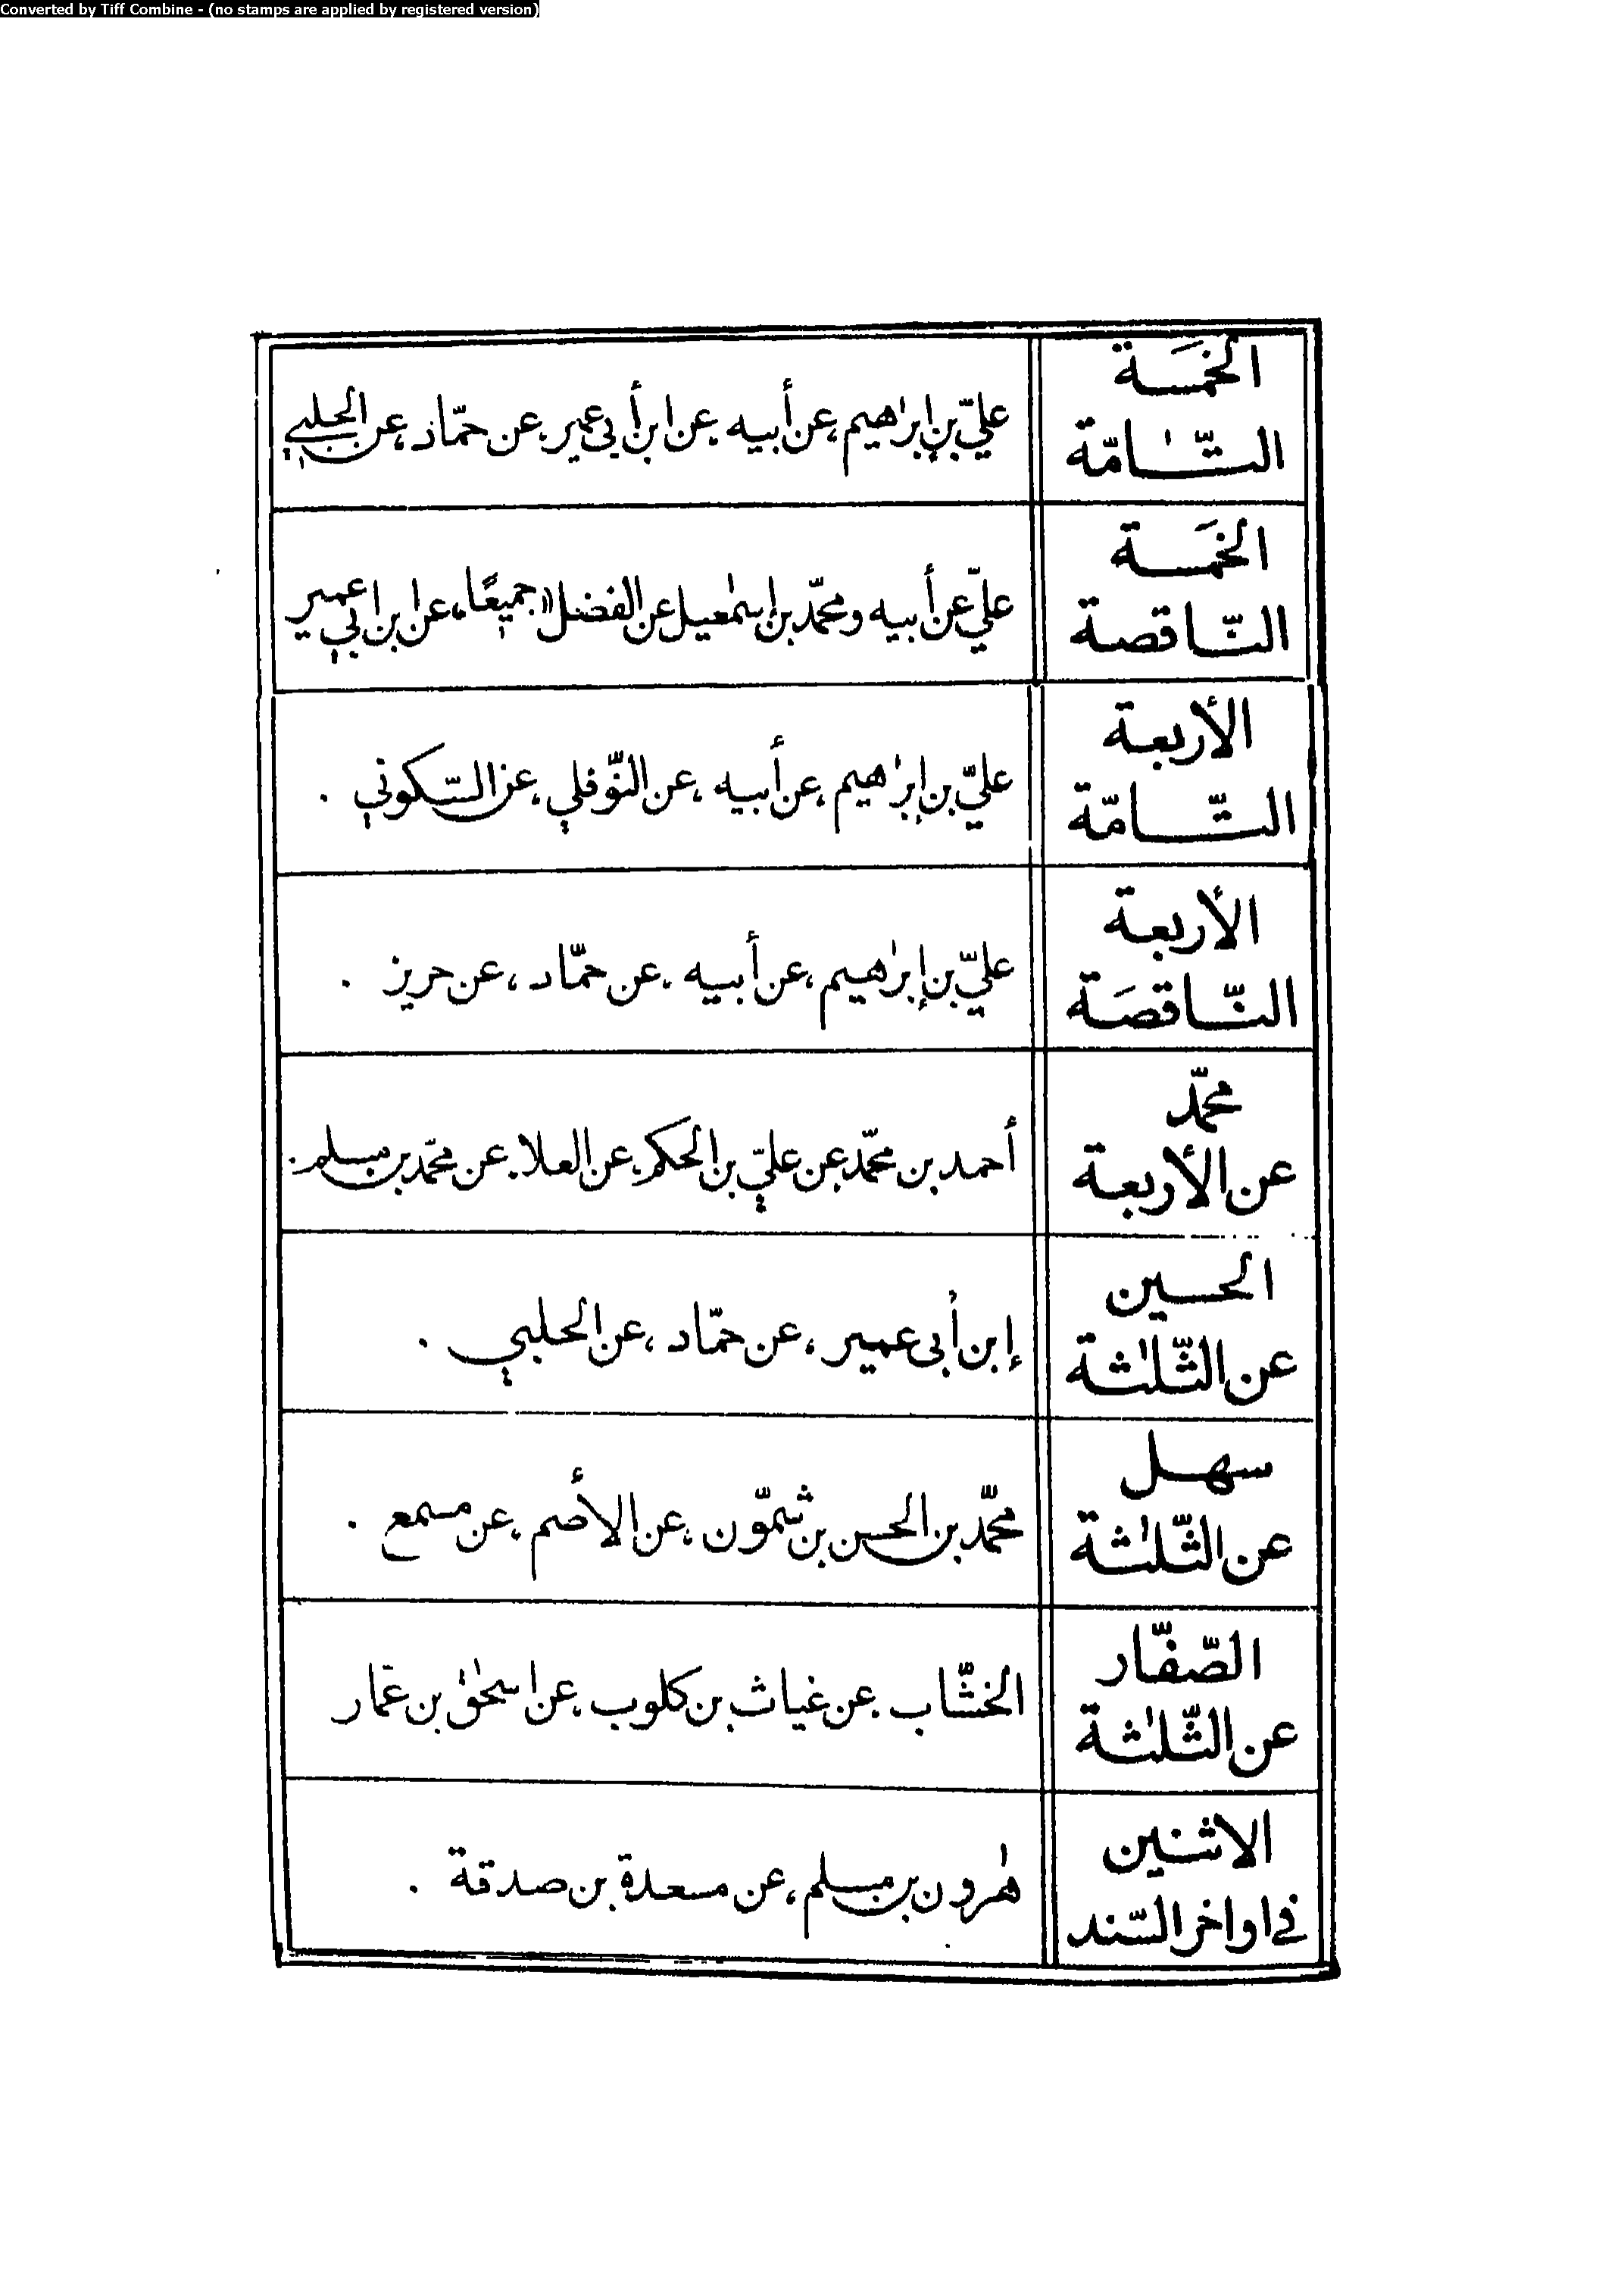 Converted by Tiff Combine - (no stamps are applied by registered version)
الخمسَة
التّامّة
عليّ بن إبرٰاهيم، عن أبيه، عن ابن أبي عمير، عن حمّاد، عن الحلبي
الخمَسة
النّاقصة
عليّ عن أبيه ومحمّد بن إسمٰعيل عن الفضل «جميعًا، عن ابن ابي عمير
الأربعة
التّامّة
عليّ بن إبرٰاهيم، عن أبيه، عن النّوفلي، عن السّكوني .
الأربعة
النّاقصَة
عليّ بن إبرٰاهيم، عن أبيه، عن حمّاد، عن حريز .
محمّد
عن الأربعة
أحمد بن محمّد، عن عليّ بن الحكم، عن العلا، عن محمّد بن مسلم.
الحسين
عن الثّلٰثة
إبن أبي عمير، عن حمّاد، عن الحلبي .
سهل
عن الثّلٰثة
محمّد بن الحسن بن شمّون، عن الأصم، عن مسمع .
الصّفّار
عن الثّلٰثة
الخشّاب، عن غياث بن كلوب، عن اسحٰق بن عمّار
الاثنين
في اواخر السّند
هٰرون بن مسلم، عن مسعدة بن صدقة .